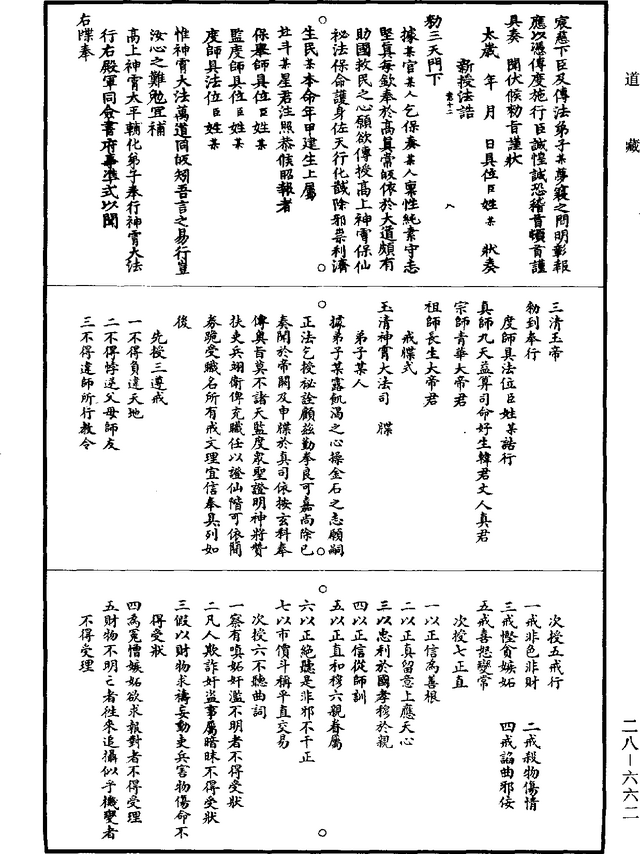 道藏
宸慈下臣及傳法弟子某夢寢之間明彰報
應以憑傳度施行臣誠惶誠恐稽首頓首謹
具奏 聞伏候勑旨謹狀
太歲 年 月 日具位臣姓某 狀奏
新授法誥
勑三天門下
據某官某人乞保奏某人稟性純素守志
堅真每欲奉於高真常皈依於大道頗有
助國救民之心願欲傳授高上神霄保仙
祕法保命護身佐天行化誠除邪祟利濟
生民某本命年甲建生上屬
北斗某星君注照恭候昭報者
保舉師具位臣姓某
監度師具位臣姓某
度師具法位臣姓某
惟神霄大法萬道同皈矧吾言之易行豈
汝心之難勉宜補
高上神霄太平輔化弟子奉行神霄大法
行右殿軍同僉書府事準式以聞
右牒奉
三清玉帝
勑到奉行
度師具法位臣姓某誥行
真師九天益算司命好生韓君丈人真君
宗師青華大帝君
祖師長生大帝君
戒牒式
玉清神霄大法司 牒
弟子某人
據弟子某露飢渴之心操金石之志願嗣
正法乞授祕詮顧茲勤拳良可嘉尚除已
奏聞於帝闕及申牒於真司依按玄科奉
傳奧旨莫不諸天監度眾聖證明神將贊
扶吏兵翊衛俾充職任以證仙階可依簡
券跪受職名所有戒文理宜信奉具列如
後
先授三遵戒
一不得負違天地
二不得悖逆父母師友
三不得違師所行教令
次授五戒行
一戒非色非財 二戒殺物傷情
三戒慳貪嫉妬 四戒諂曲邪佞
五戒喜怒變常
次授七正直
一以正信為善根
二以正真留意上應天心
三以忠利於國孝穆於親
四以正信從師訓
五以正直和穆六親眷屬
六以正絕聽是非邪不干正
七以市價斗稱平直交易
次授六不聽曲詞
一察有嗔妬奸濫不明者不得受狀
二凡人欺詐奸盜事屬暗昧不得受狀
三假以財物求禱妄動吏兵害物傷命不
得受狀
四為冤憎嫉妬欲求報對者不得受理
五財物不明亡者往來追攝似乎機變者
不得受理
二八—六六二